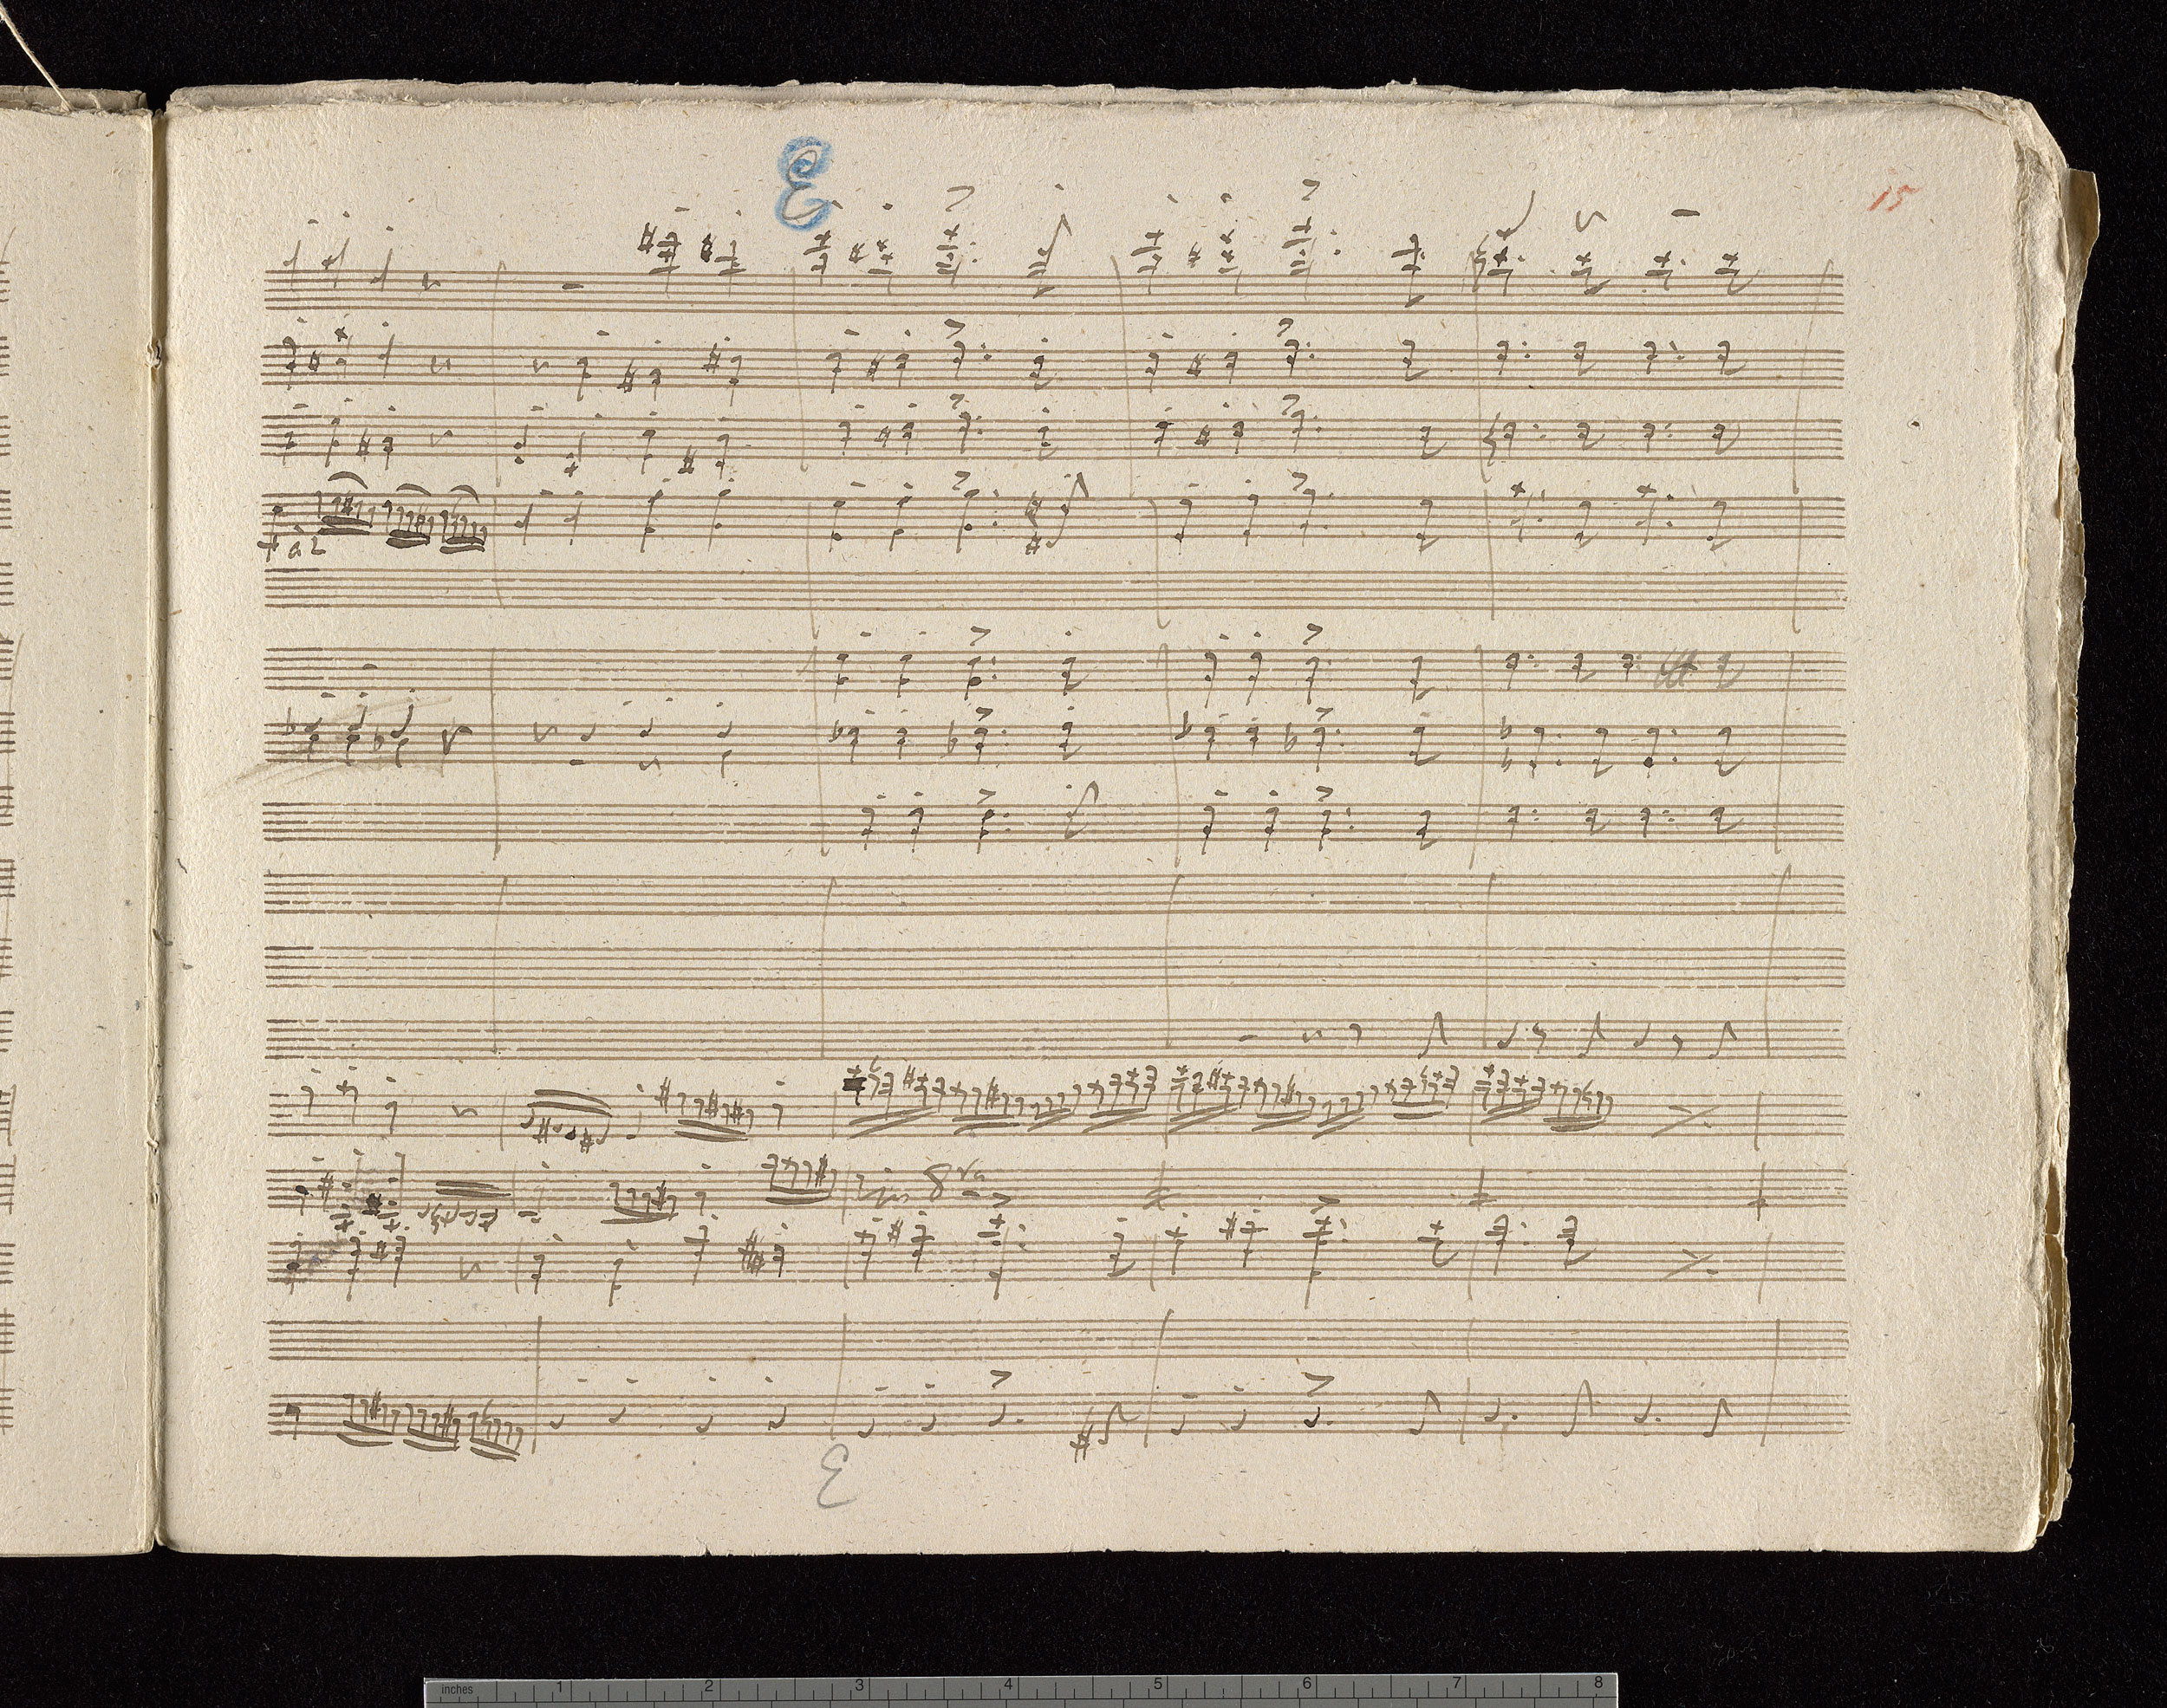 E
15
a 2
8va
E
inches 1 2 3 4 5 6 7 8